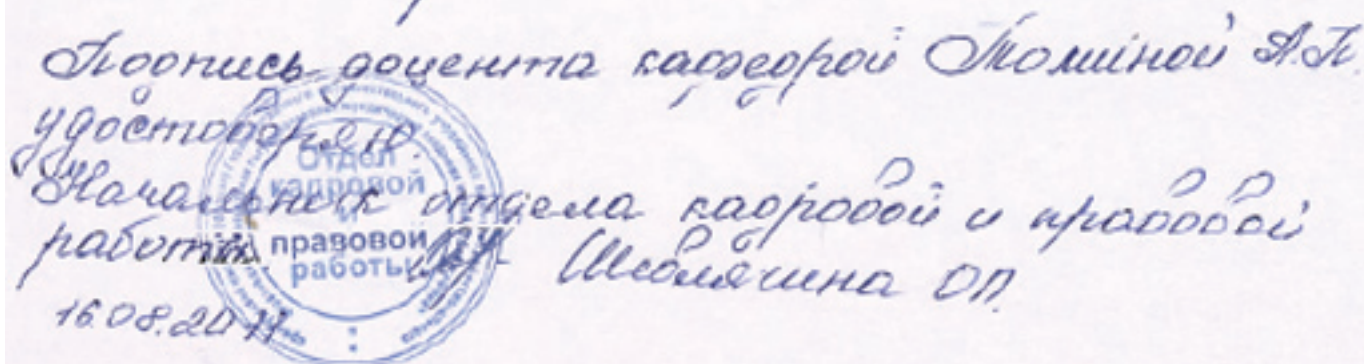 Подпись доцента кафедрой Томиной А.П.
удостоверяю.
Начальник отдела кадровой и правовой
работы Шеболячина ОП.
16.08.2011
Отдел
кадровой
и
правовой
работы